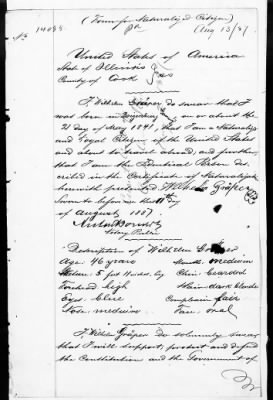 No 14088
(Form for Naturalized Citizen)
Aug 13/87
United States of America
State of Illinois
County of Cook
I, Wilhelm Gräper do swear that I
was born in on or about the
21 day of May 1841, that I am a Naturalized
and loyal Citizen of the United States
and about to travel abroad, and further,
that I am the Identical Person des-
cribed in the Certificate of Naturalization
herewith presented. Wilhelm Gräper
Sworn to before me this 11th day
of August 1887.
Notary Public
Description of Wilhelm Gräper
Age: 46 years Mouth: medium
Stature: 5 feet 11 inches. Chin: bearded
Forehead: high Hair: dark blonde
Eyes: Blue Complexion: fair
Nose: medium Face: oval
I, Wilhelm Gräper do solemnly swear
that I will support, protect and defend
the Constitution and the Government of